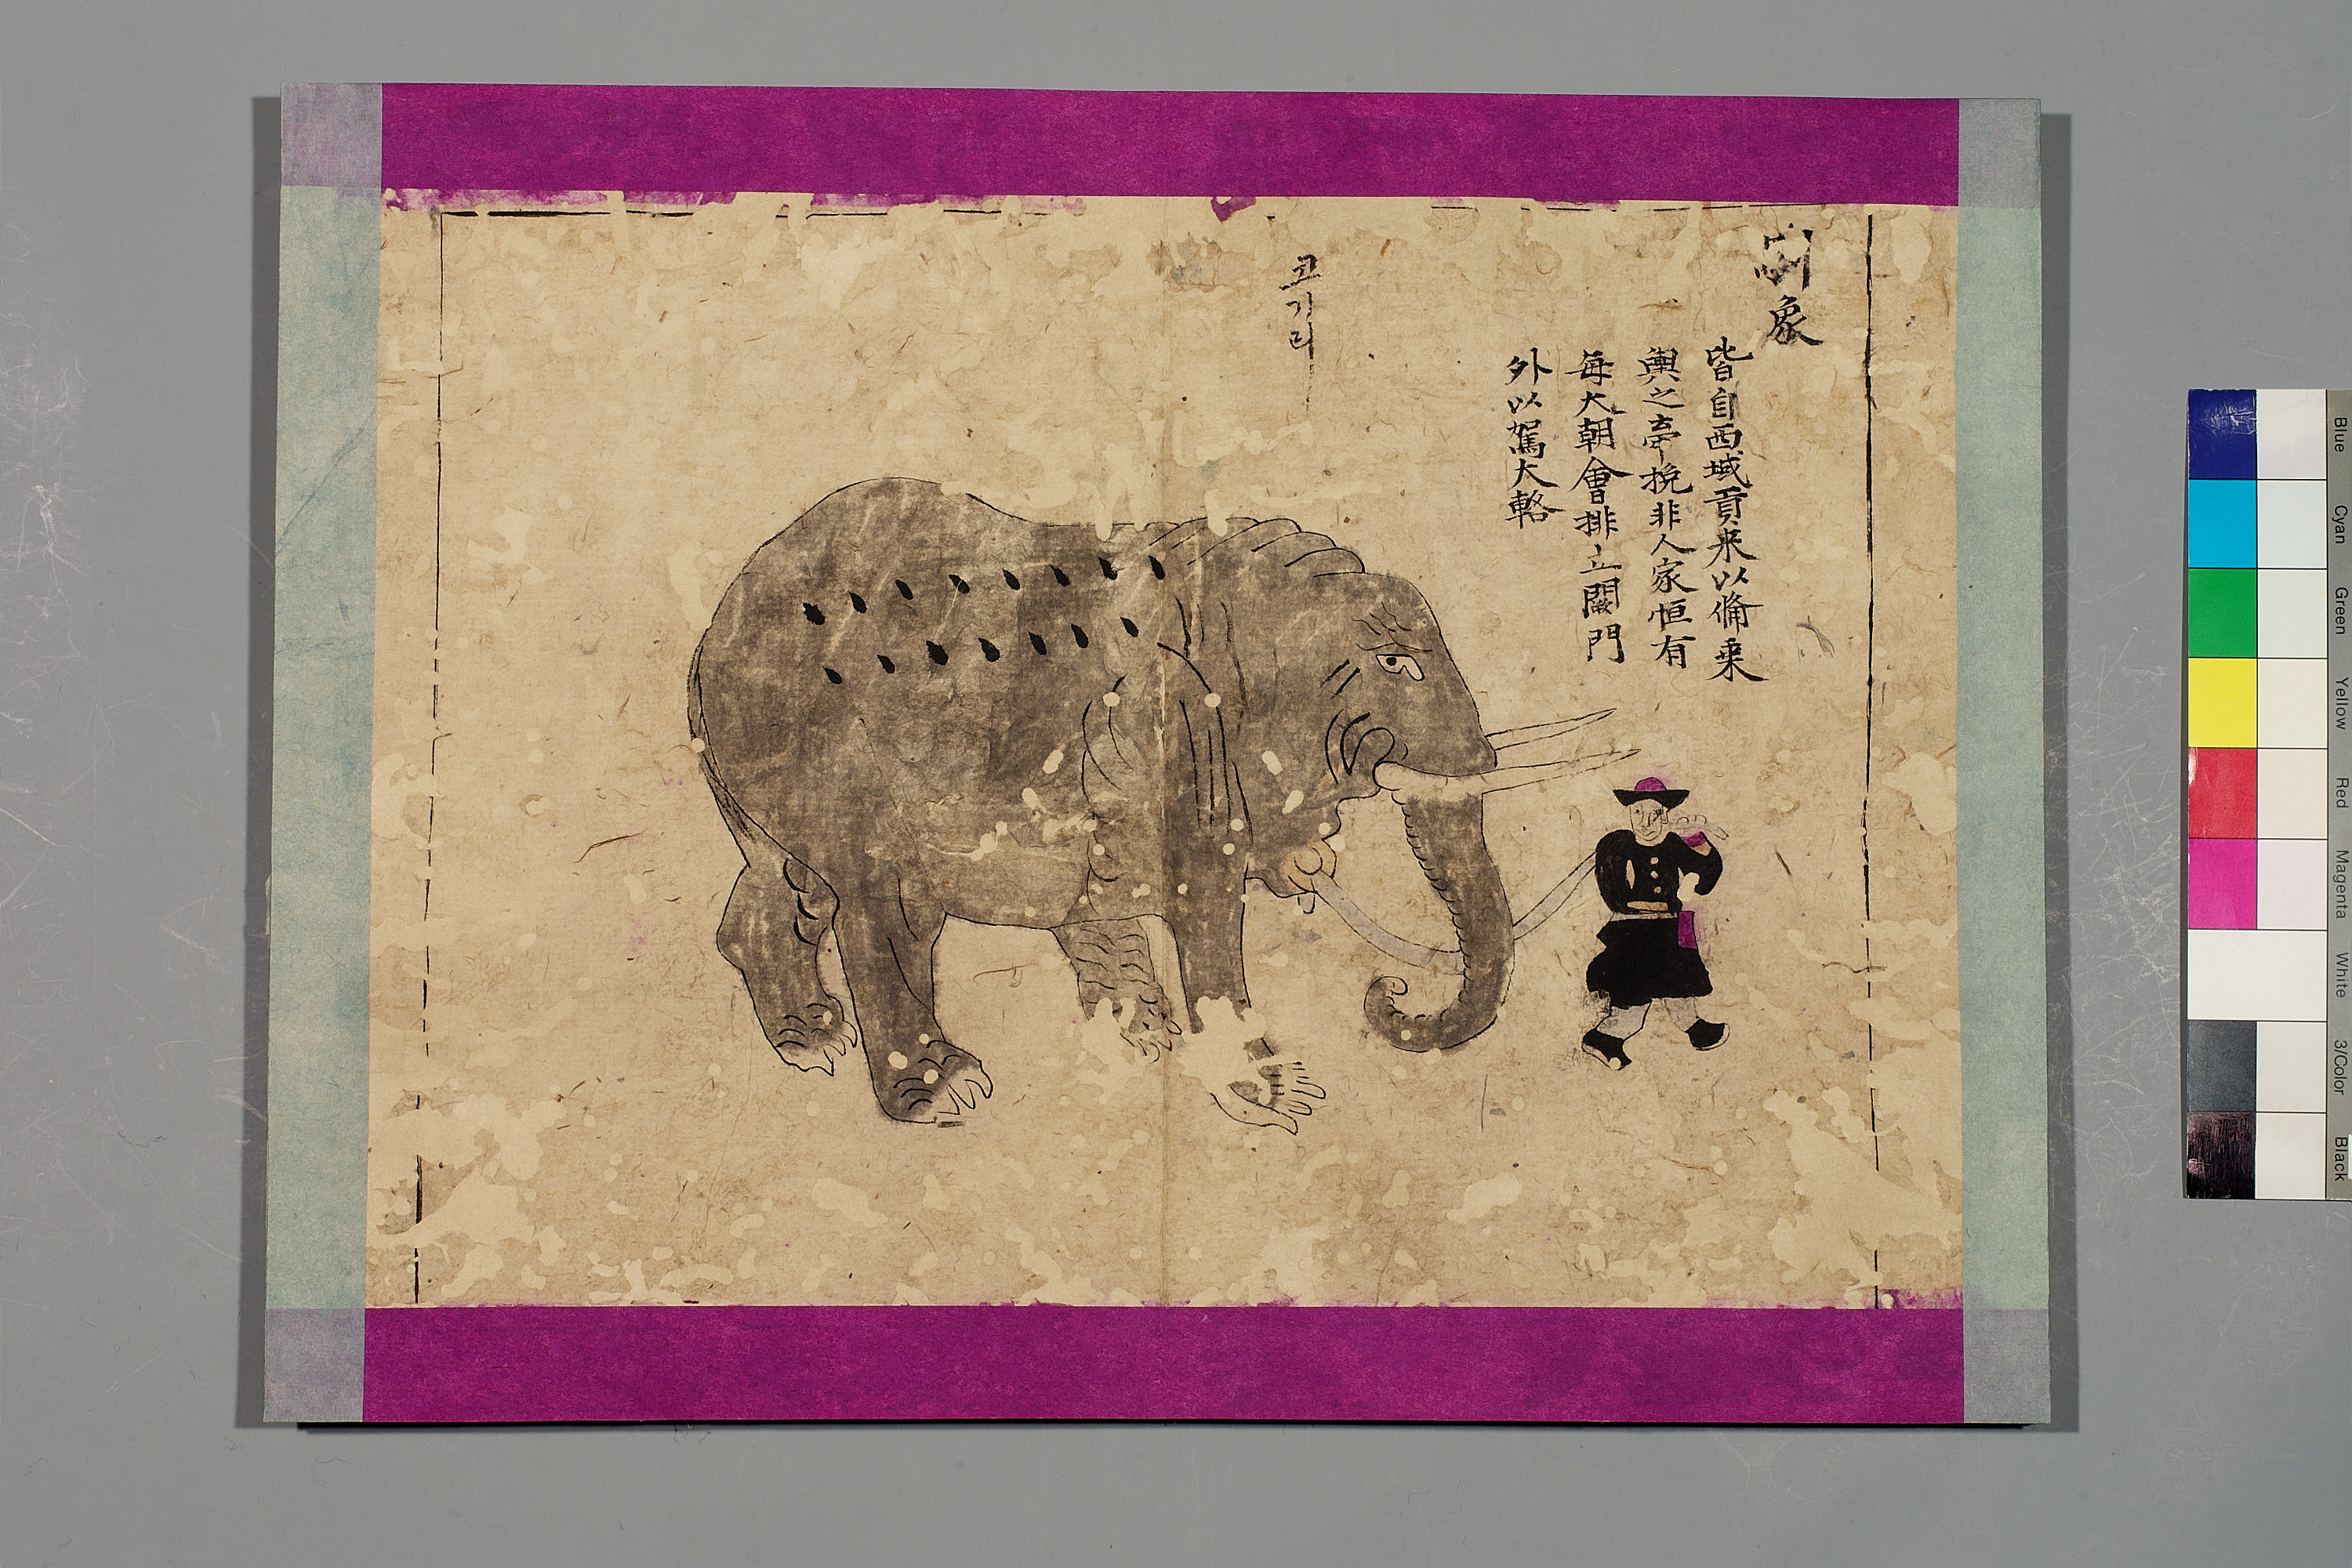 象
皆自西域貢来以備乗
輿之牽挽非人家恒有
每大朝會排立闕門
外以駕大輅
코기리
Blue
Cyan
Green
Yellow
Red
Magenta
White
3/Color
Black